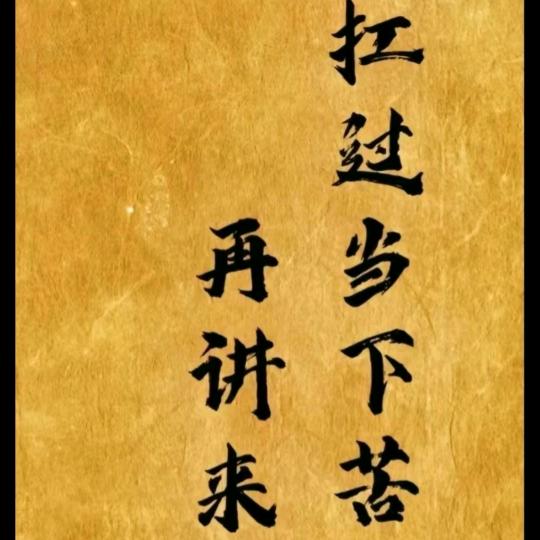 扛过当下苦
再讲来